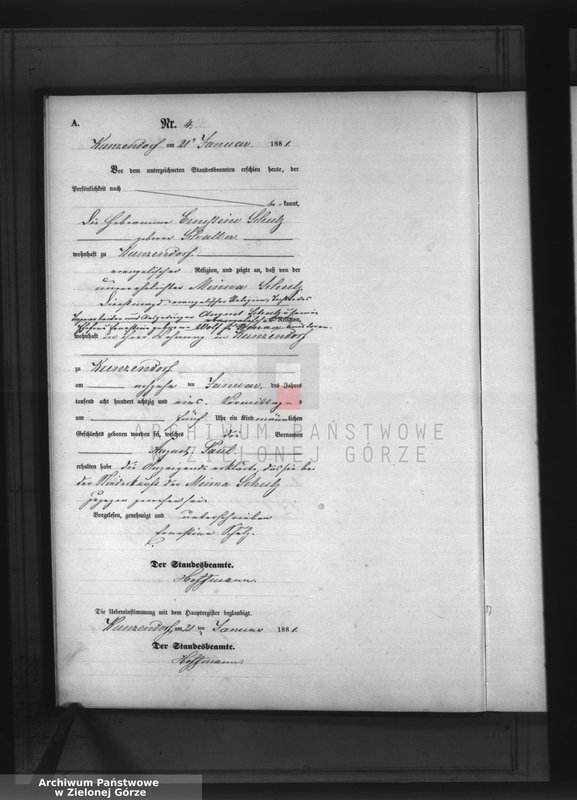 A.
Nr. 4.
Kunzendorf am 21 Januar 1881.
Vor dem unterzeichneten Standesbeamten erschien heute, der
Persönlichkeit nach
be kannt,
die Hebamme Ernestine Schulz
geborene
wohnhaft zu Kunzendorf
evangelischer Religion, und zeigte an, daß von der
unverehelichten Minna Schulz
Dienstmagd, evangelischer Religion, Tochter des
August Schulz
geborene Wolf
wohnhaft in ihrer Wohnung in Kunzendorf
zu Kunzendorf
am ten Januar, des Jahres
tausend acht hundert achtzig und eins Vormittags
um fünf Uhr ein Kind männlichen
Geschlechts geboren worden sei, welches die Vornamen
August Paul
erhalten habe die Anzeigende erklärte, daß sie bei
der Niederkunft der Minna Schulz
zugegen gewesen sei.
Vorgelesen, genehmigt und unterschrieben
Ernestine Schulz.
Der Standesbeamte.
Hoffmann.
Die Uebereinstimmung mit dem Hauptregister beglaubigt.
Kunzendorf, am 21 ten Januar 1881.
Der Standesbeamte.
Hoffmann.
ARCHIWUM PAŃSTWOWE
W ZIELONEJ GÓRZE
Archiwum Państwowe
w Zielonej Górze